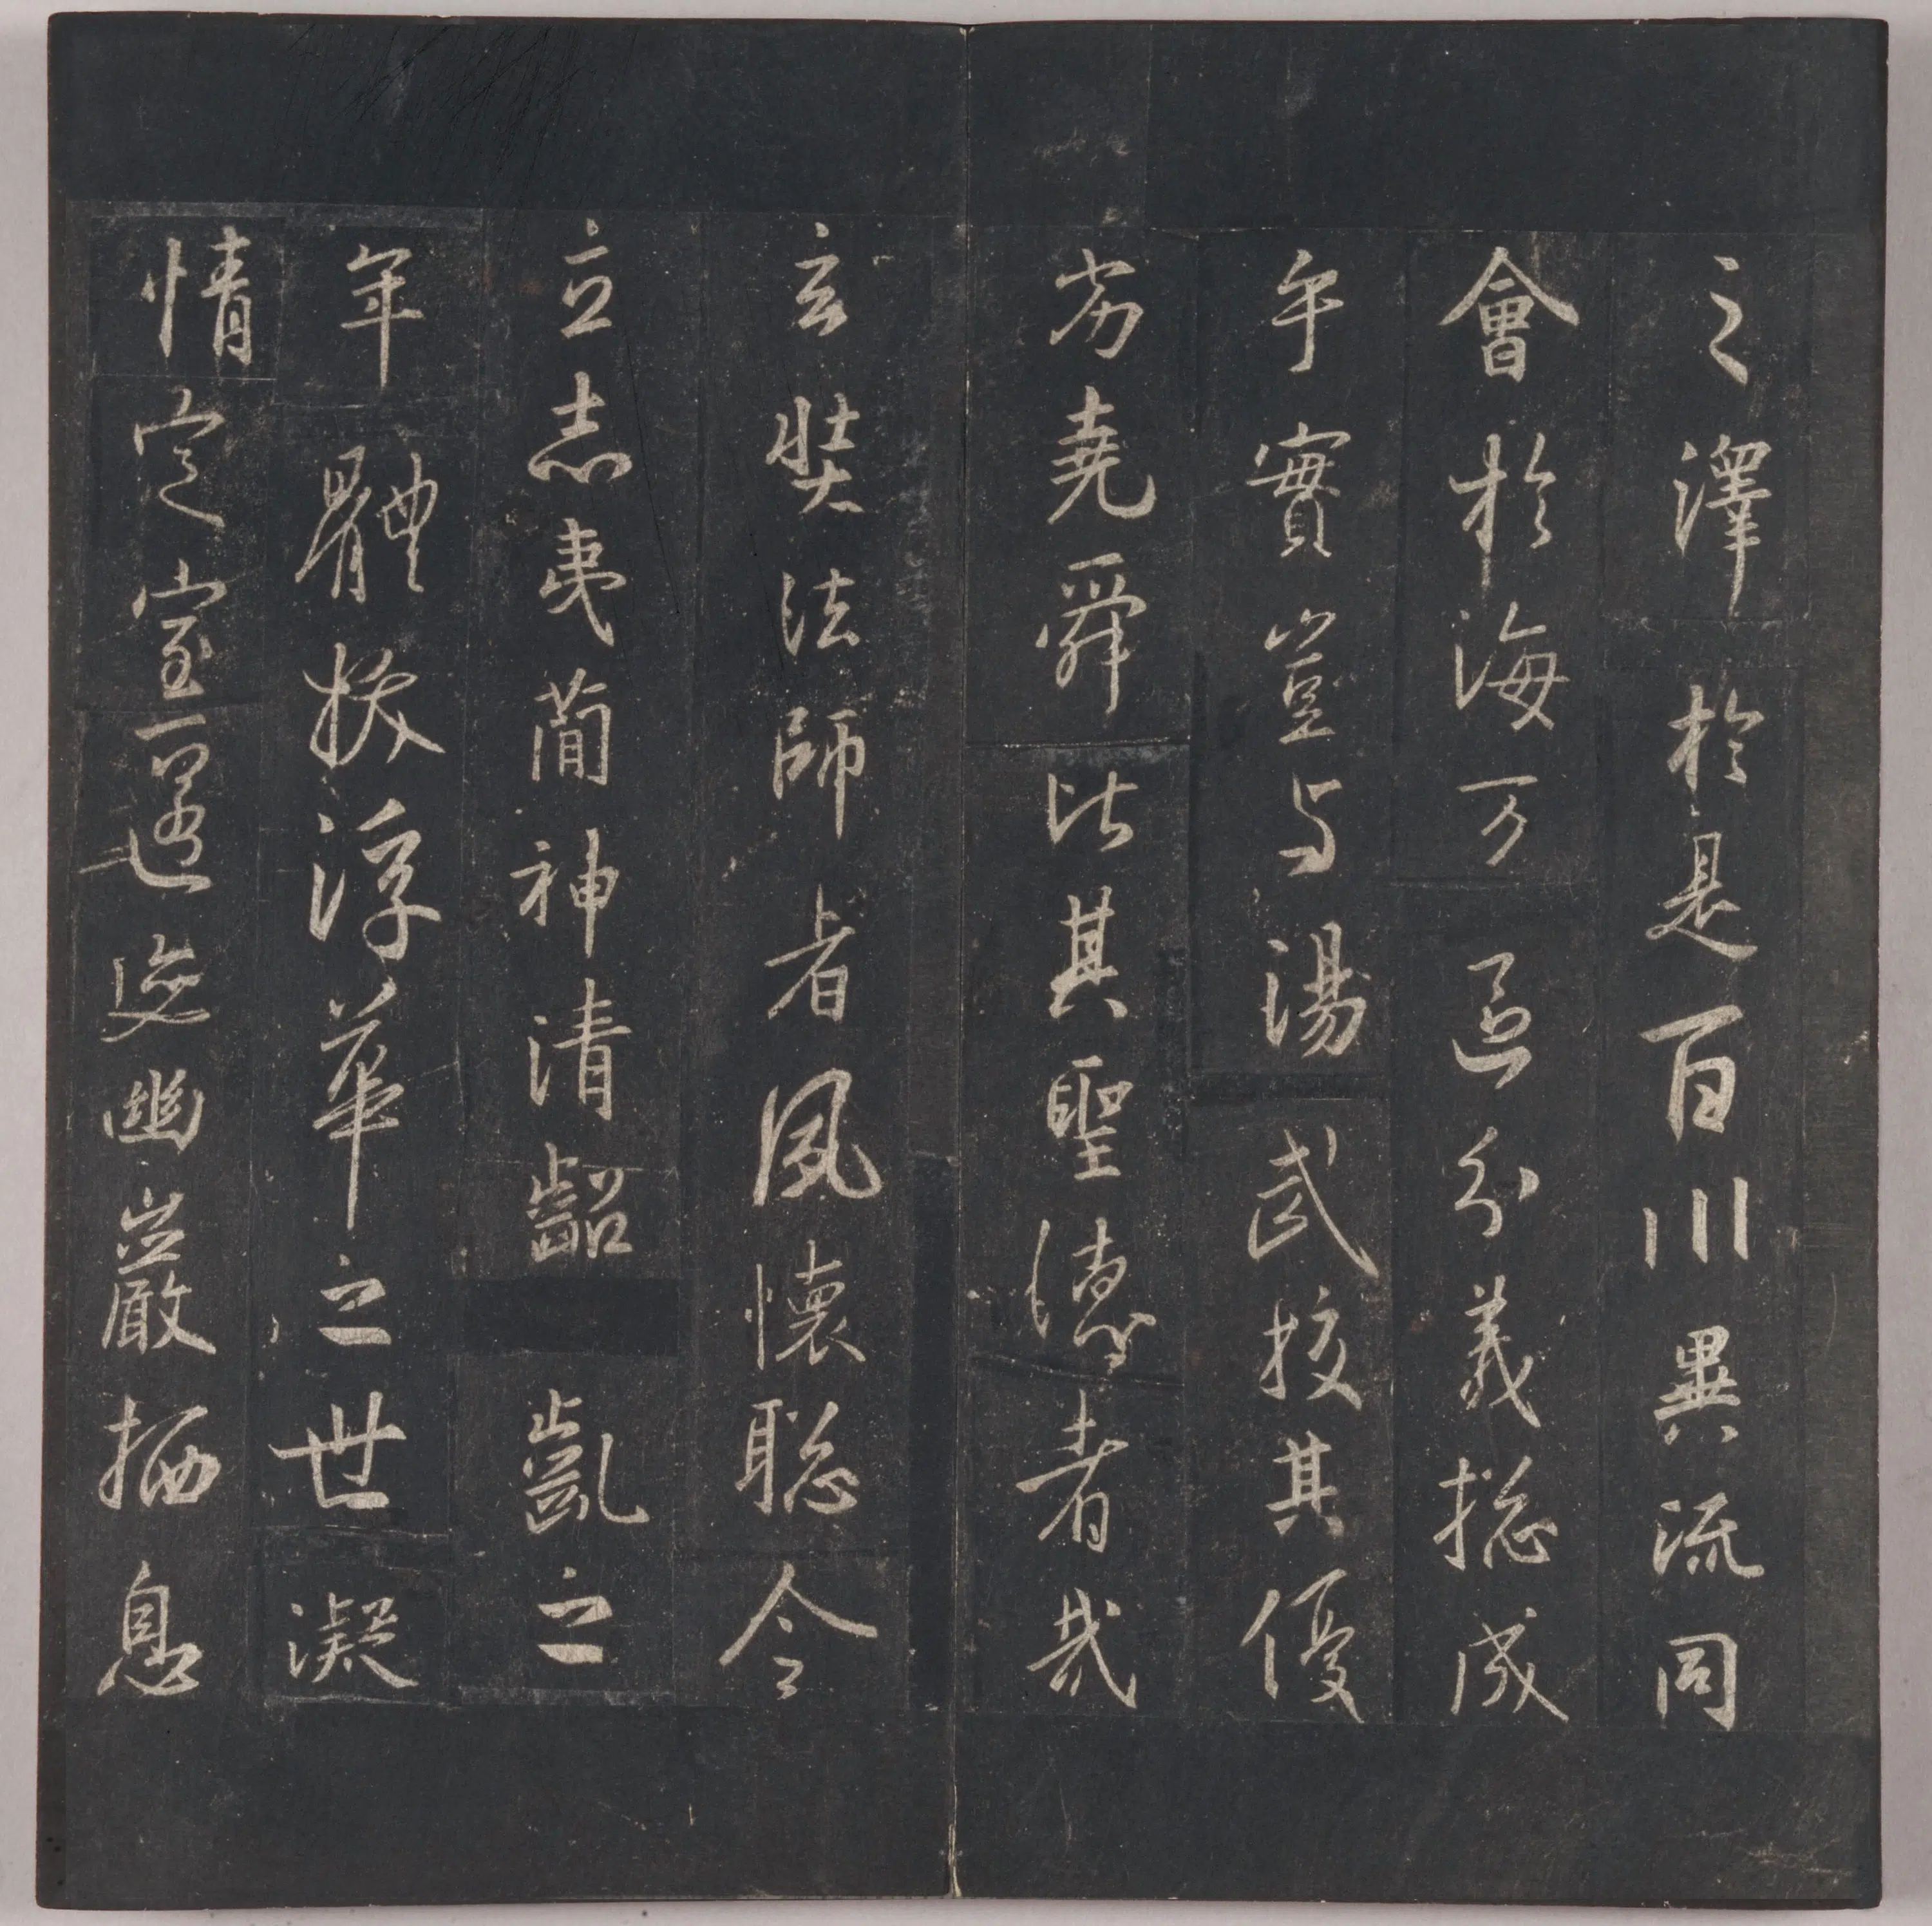 之澤於是百川異流同
會於海万區分義捴成
乎實豈与湯武挍其優
劣堯舜比其聖德者哉
玄奘法師者夙懷聡令
立志夷蕳神清齠齔之
年體拔浮華之世凝
情定室匿迹幽巖栖息